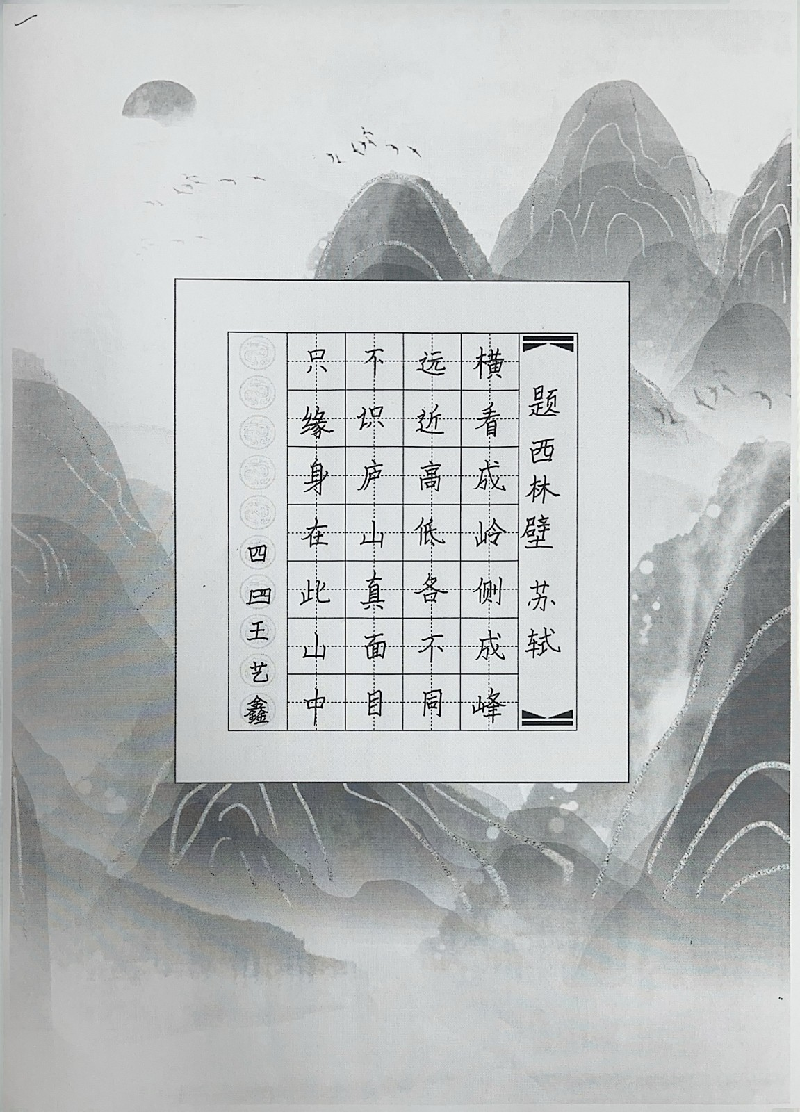 题西林壁 苏轼
横看成岭侧成峰
远近高低各不同
不识庐山真面目
只缘身在此山中
四四王艺鑫